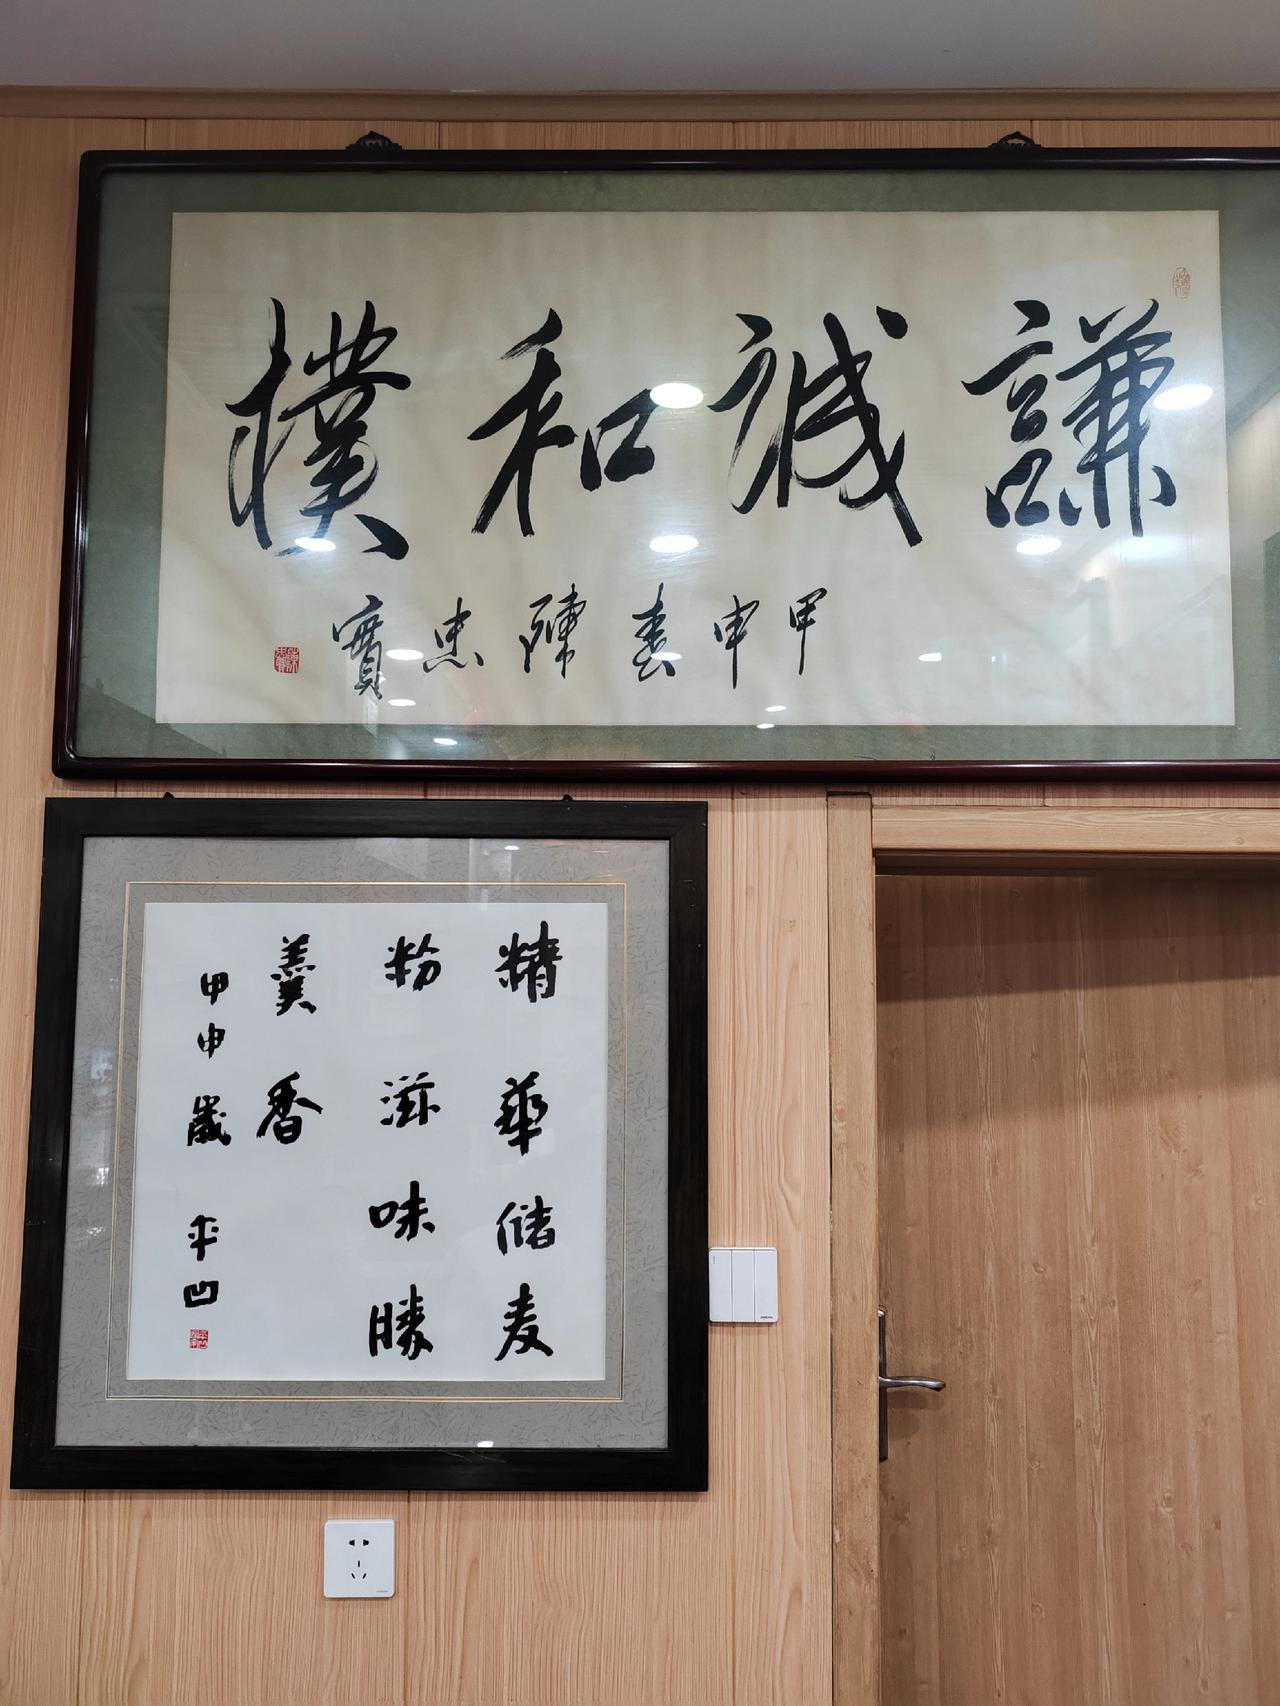 謙誠和樸
甲申春陳忠實
精華储麦
粉滋味勝
羹香
甲申歲 平凹